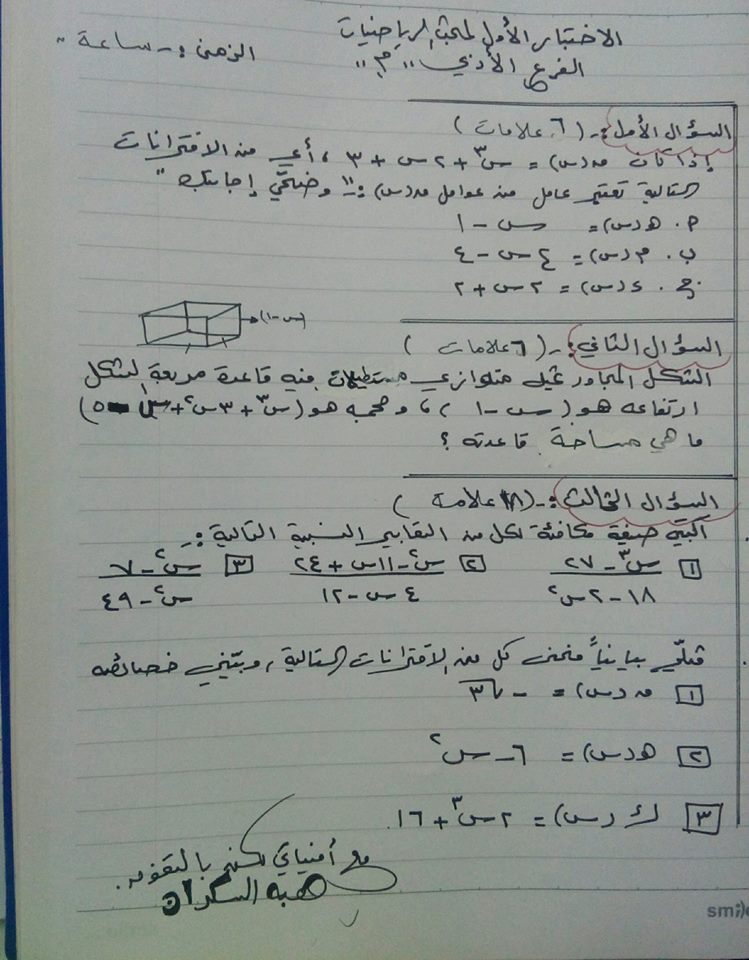 الاختبار الأول لمبحث الرياضيات
الفرع الأدبي "م"
الزمن :- ساعة "
السؤال الأول :- (٦ علامات)
إذا كان ق(س) = س٣ + ٢س + ٣ ، أي من الاقترانات
التالية تعتبر عامل من عوامل ق(س) :- " وضحي إجابتك "
٢. هـ(س) = س - ١
ب. م(س) = ٤س - ٤
ج. ع(س) = ٢س + ٢
(س-١)
السؤال الثاني :- (٦ علامات)
الشكل المجاور يمثل متوازي مستطيلات فيه قاعدة مربعة الشكل
ارتفاعه هو (س - ١) ، وحجمه هو (س٣ + ٣س٢ + س - ٥)
ما هي مساحة قاعدته ؟
السؤال الثالث :- (١٨ علامة)
اكتبي صيغة مكافئة لكل من التعابير النسبية التالية :-
١ س٣ - ٢٧ / ١٨ - ٢س٢ ٢ س٢ - ١١س + ٢٤ / ٤س - ١٢ ٣ س٢ - ٧ / س٢ - ٤٩
مثلي بيانياً منحنى كل من الاقترانات التالية ، وبيني خصائصه
١ ق(س) = - ٣٦√
٢ هـ(س) = ٦ - س٢
٣ ك(س) = ٢س٣ + ١٦
مع أمنياتي لكن بالتفوق.
هبه السكران
smile